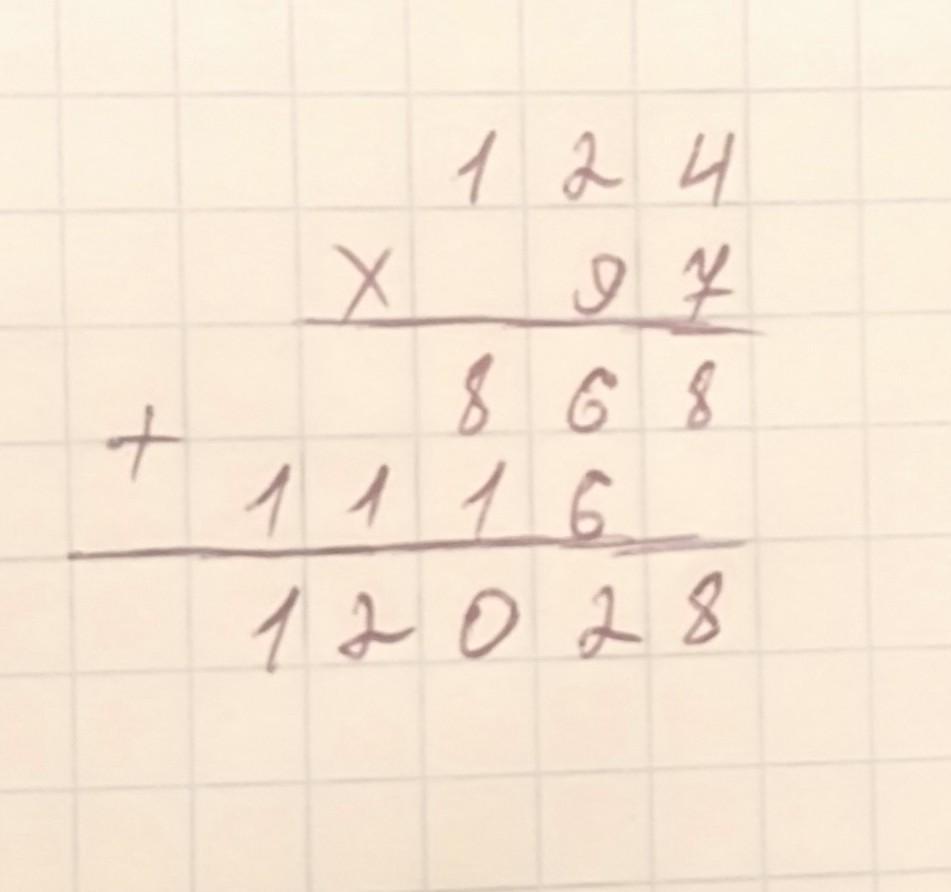 124
X 97
868
+
1116
12028